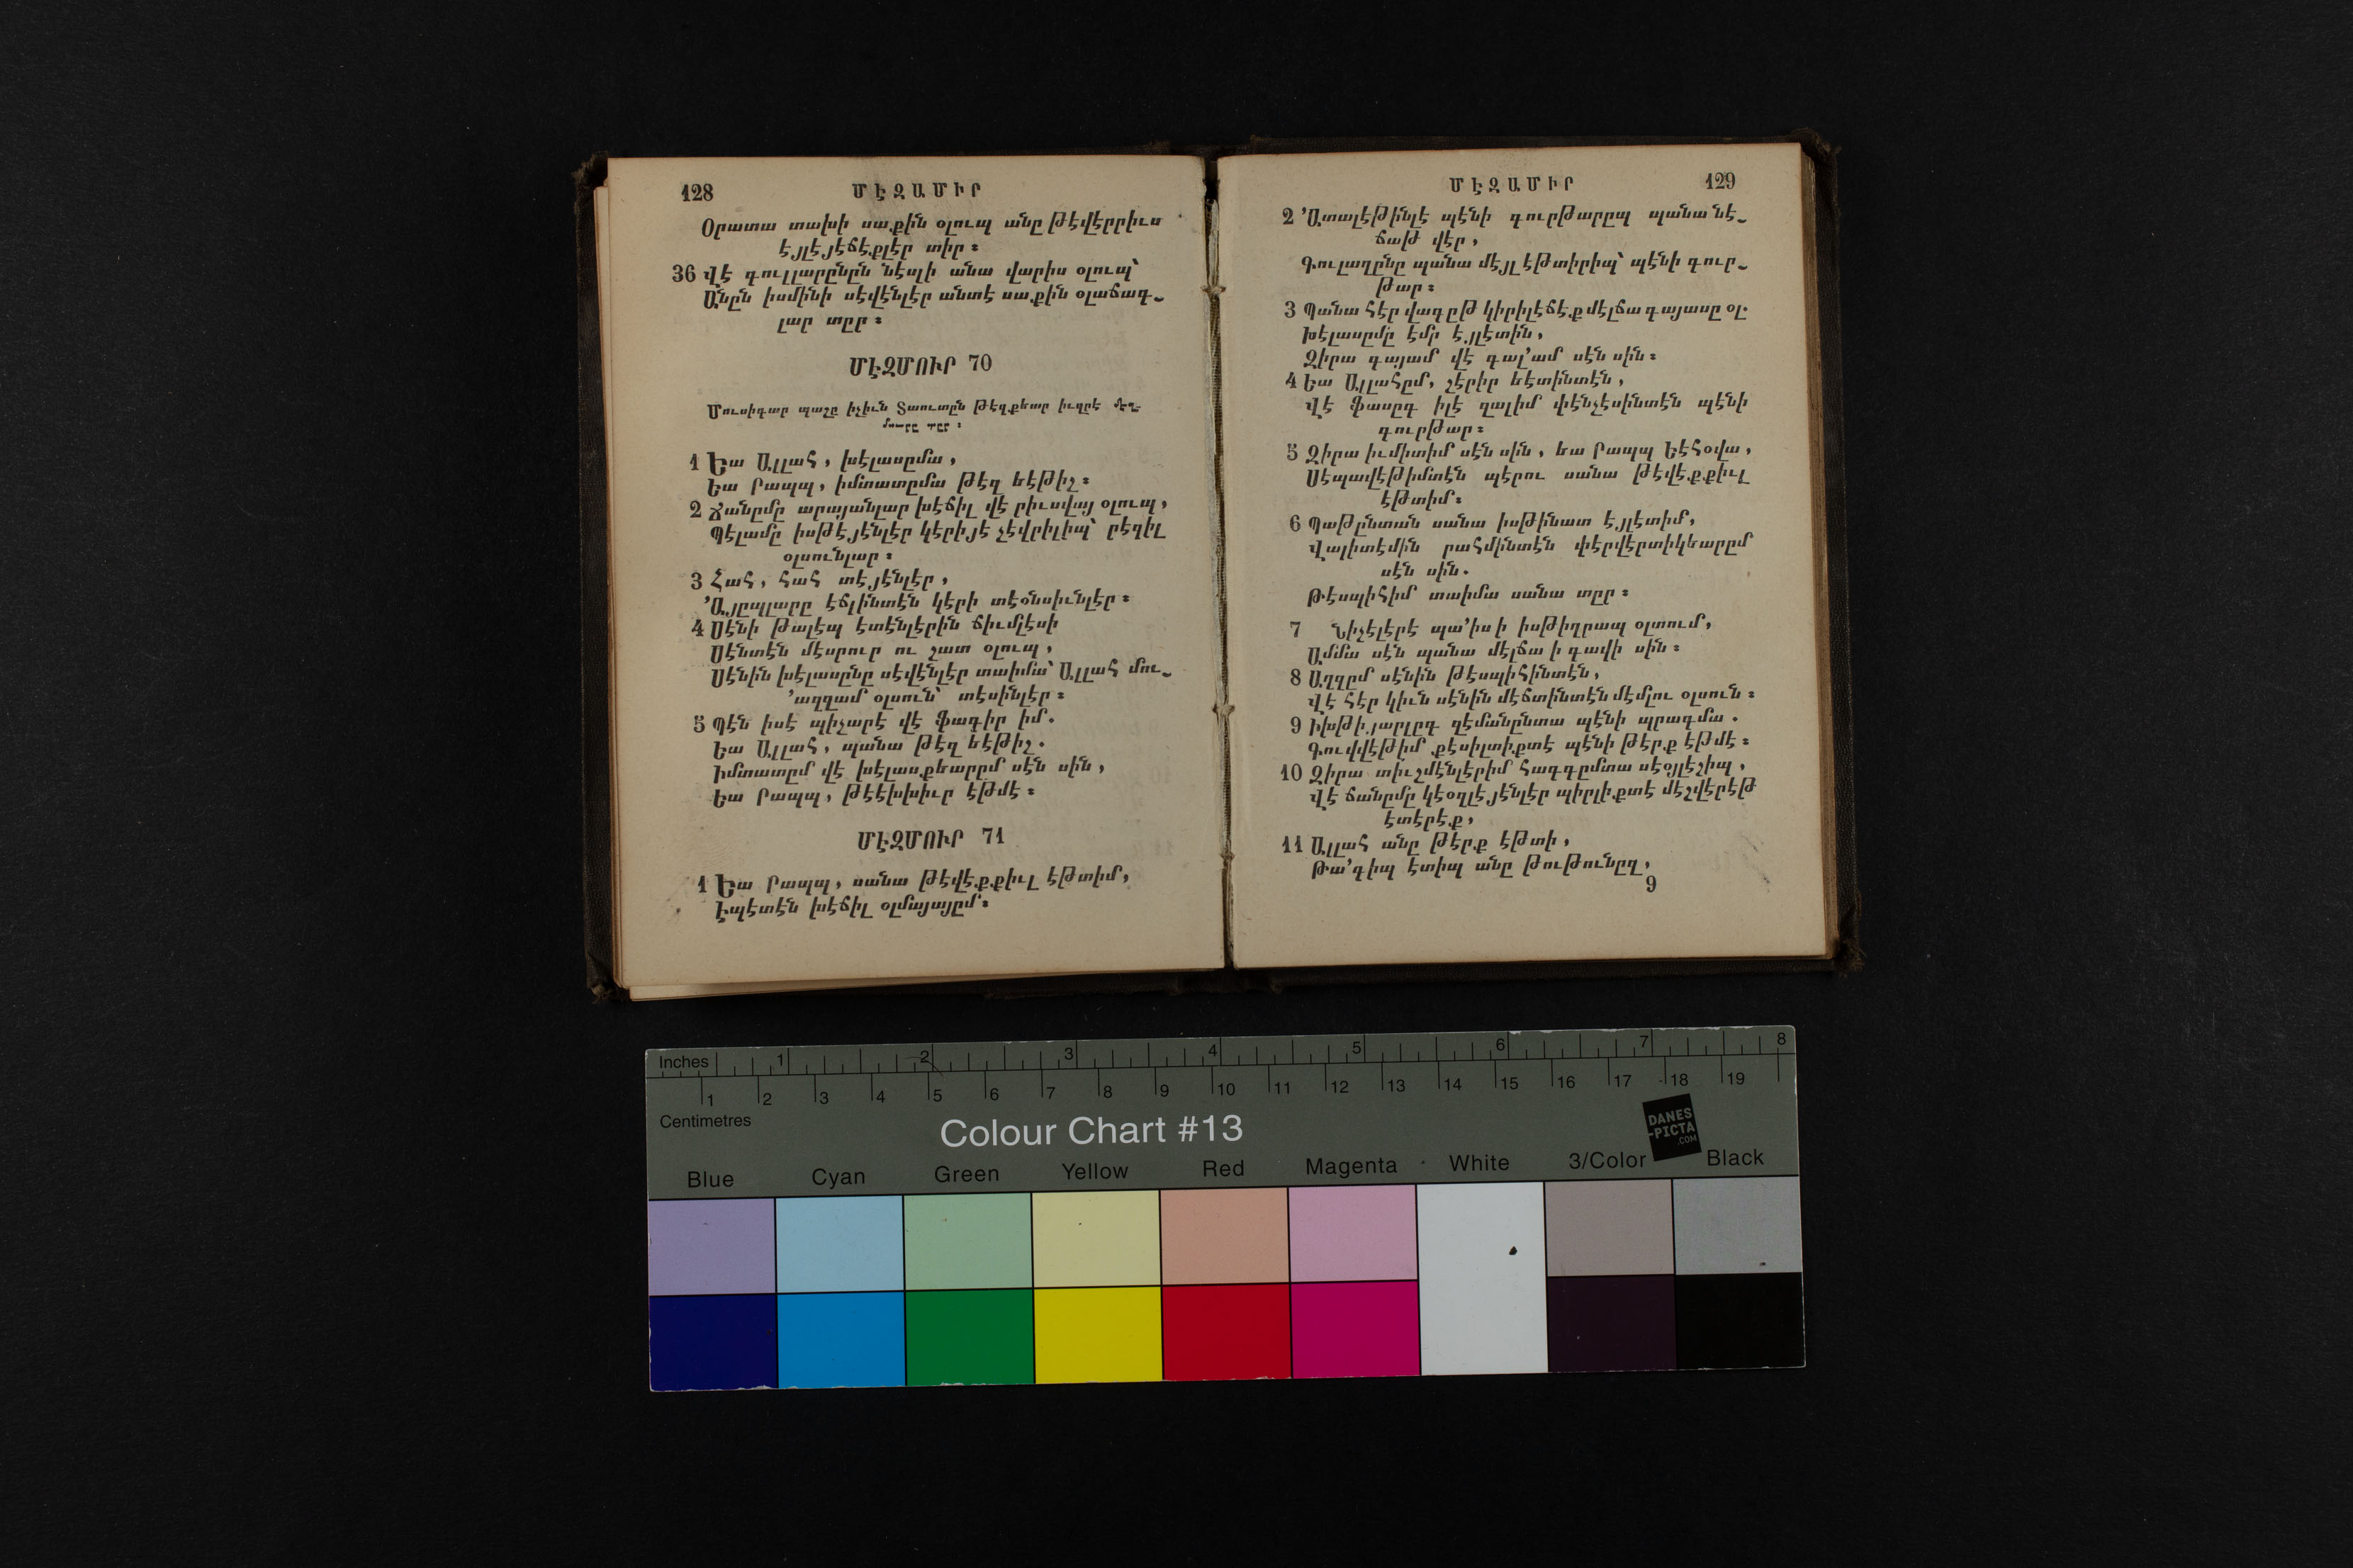 128 ՄԷԶԱՄԻՐ
Օրատա տախի սաքին օլուպ անը թէվէրրիւս
էյլէյէճէքլէր տիր։
36 Վէ գուլլարընըն նէսլի անա վարիս օլուպ՝
Անըն իսմինի սէվէնլէր անտէ սաքին օլաճագ֊
լար տըր։
ՄԷԶՄՈՒՐ 70
Մուսիգար պաշը իչիւն Տաուտըն թէզքեար իւզրէ մէզ֊
մուրը տըր։
1 Եա Ալլահ, խէլասըմա,
Եա Րապպ, իմտատըմա թէզ եէթիշ։
2 Ճանըմը արայանլար խէճիլ վէ րիւսվայ օլուպ,
Պէլամը իսթէյէնլէր կէրիյէ չէվրիլիպ՝ րէզիլ
օլսունլար։
3 Հահ, հահ տէյէնլէր,
՚Այըպլարը էճլինտէն կէրի տէօնսիւնլէր։
4 Սէնի թալէպ էտէնլէրին ճիւմլէսի
Սէնտէն մէսրուր ու շատ օլուպ,
Սէնին խէլասընը սէվէնլէր տաիմա՝ Ալլահ մու֊
՚ազզամ օլսուն՝ տէսինլէր։
5 Պէն իսէ պիչարէ վէ ֆագիր իմ.
Եա Ալլահ, պանա թէզ եէթիշ.
Իմտատըմ վէ խէլասքեարըմ սէն սին,
Եա Րապպ, թէէխխիւր էթմէ։
ՄԷԶՄՈՒՐ 71
1 Եա Րապպ, սանա թէվէքքիւլ էթտիմ,
Էպէտէն խէճիլ օլմայայըմ։
ՄԷԶԱՄԻՐ 129
2 ՚Ատալէթինլէ պէնի գուրթարըպ պանա նէ֊
ճաթ վէր,
Գուլաղընը պանա մէյլ էթտիրիպ՝ պէնի գուր֊
թար։
3 Պանա հէր վագըթ կիրիլէճէք մէլճա գայասը օլ.
Խէլասըմը էմր էյլէտին,
Զիրա գայամ վէ գալ՚ամ սէն սին։
4 Եա Ալլահըմ, շէրիր եէտինտէն,
Վէ ֆասըգ իլէ զալիմ փէնչէսինտէն պէնի
գուրթար։
5 Զիրա իւմիտիմ սէն սին, եա Րապպ Եէհօվա,
Սէպավէթիմտէն պէրու սանա թէվէքքիւլ
էթտիմ։
6 Պաթընտան սանա իսթինատ էյլէտիմ,
Վալիտէմին րահմինտէն փէրվէրտիկեարըմ
սէն սին.
Թէսպիհիմ տաիմա սանա տըր։
7 Նիչէլէրէ պա՚իս ի իսթիղրապ օլտում,
Ամմա սէն պանա մէլճա ի գավի սին։
8 Աղզըմ սէնին թէսպիհինտէն,
Վէ հէր կիւն սէնին մէճտինտէն մէմլու օլսուն։
9 Իխթիյարլըգ զէմանընտա պէնի պրագմա.
Գուվվէթիմ քէսիլտիքտէ պէնի թէրք էթմէ։
10 Զիրա տիւշմէնլէրիմ հագգըմտա սէօյլէշիպ,
Վէ ճանըմը կէօզլէյէնլէր պիրլիքտէ մէշվէրէթ
էտէրէք,
11 Ալլահ անը թէրք էթտի,
Թա՚գիպ էտիպ անը թութունըզ,
9
Inches 1 2 3 4 5 6 7 8
1 2 3 4 5 6 7 8 9 10 11 12 13 14 15 16 17 18 19
Centimetres
Colour Chart #13
DANES
-PICTA
.COM
Blue Cyan Green Yellow Red Magenta White 3/Color Black